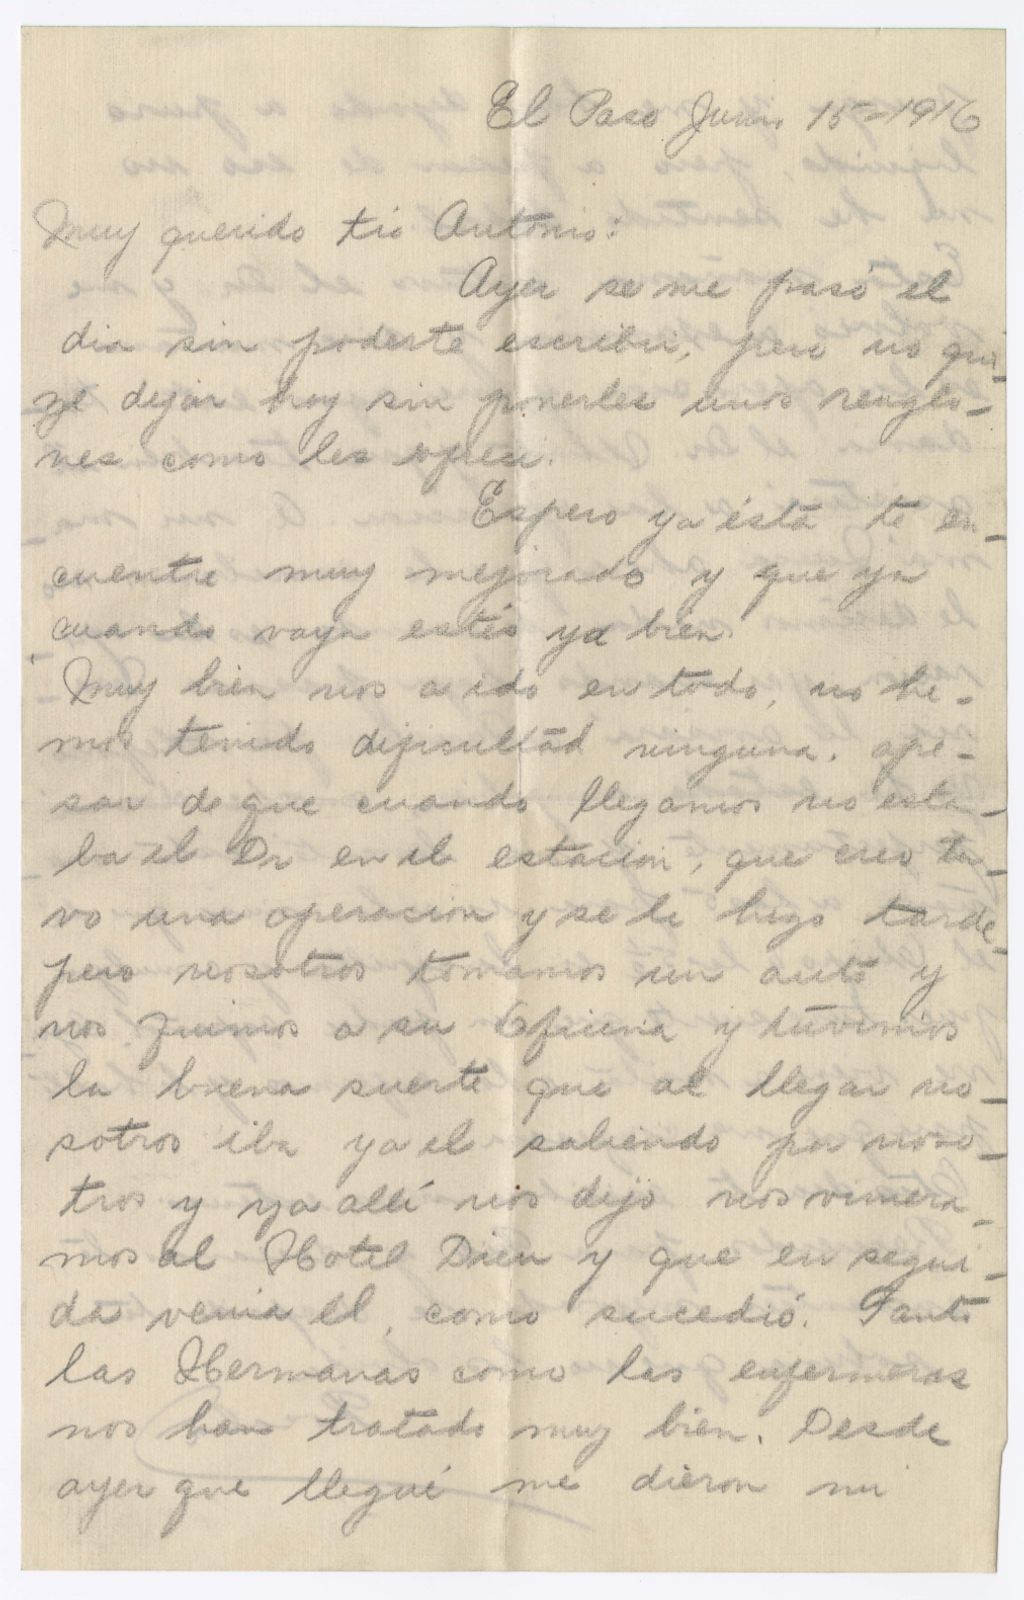 El Paso Junio 15-1916
Muy querido tio Antonio:
Ayer se me pasó el
dia sin poderte escribir, pero no qui-
ze dejar hoy sin ponerles unos renglo-
nes como les ofreci.
Espero ya ésta te en-
cuentre muy mejorado y que ya
cuando vaya estés ya bien.
Muy bien nos a ido en todo, no he-
mos tenido dificultad ninguna. ape-
sar de que cuando llegamos no esta-
ba el Dr en el estacion, que creo tu-
vo una operacion y se le hizo tarde-
pero nosotros tomamos un auto y
nos fuimos a su Oficina y tuvimos
la buena suerte que al llegar no-
sotros iba ya el saliendo por noso-
tros y ya allí nos dijo nos viniera-
mos al Hotel Dieu y que en segui-
da venia el, como sucedió. Tanto
las Hermanas como las enfermeras
nos han tratado muy bien. Desde
ayer que llegué me dieron mi